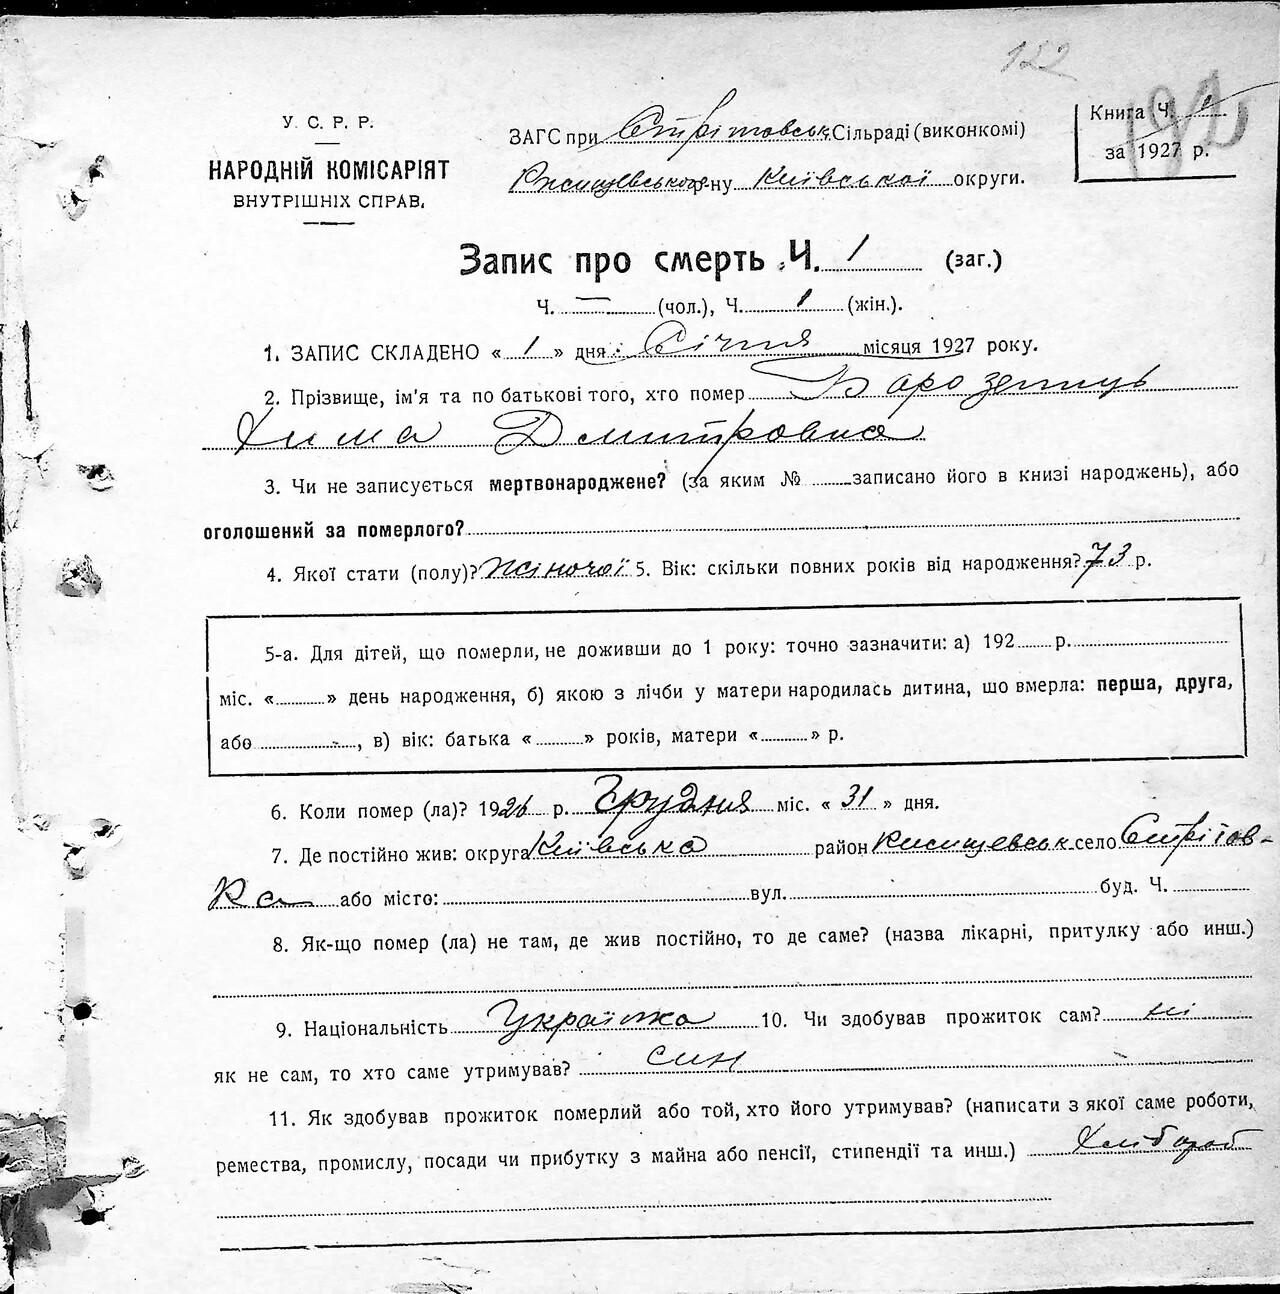 122
У. С. Р. Р.
НАРОДНІЙ КОМІСАРІЯТ
ВНУТРІШНІХ СПРАВ.
ЗАГС при Стрітовськ. Сільраді (виконкомі)
Ржищевського р-ну Київської округи.
Книга Ч. 1
за 1927 р.
Запис про смерть Ч. 1 (заг.)
Ч. — (чол.), Ч. 1 (жін.).
1. ЗАПИС СКЛАДЕНО « 1 » дня Січня місяця 1927 року.
2. Прізвище, ім'я та по батькові того, хто помер
Хима Дмитровна
3. Чи не записується мертвонароджене? (за яким № записано його в книзі народжень), або
оголошений за померлого?
4. Якої стати (полу)? жіночої 5. Вік: скільки повних років від народження? 73 р.
5-а. Для дітей, що померли, не доживши до 1 року: точно зазначити: а) 192 р.
міс. « » день народження, б) якою з лічби у матери народилась дитина, що вмерла: перша, друга,
або , в) вік: батька « » років, матери « » р.
6. Коли помер (ла)? 1926 р. Грудня міс. « 31 » дня.
7. Де постійно жив: округа Київська район Ржищевськ. село Стрітов-
ка або місто: вул. буд. Ч.
8. Як-що помер (ла) не там, де жив постійно, то де саме? (назва лікарні, притулку або инш.)
9. Національність Українка 10. Чи здобував прожиток сам? ні
як не сам, то хто саме утримував? син
11. Як здобував прожиток померлий або той, хто його утримував? (написати з якої саме роботи,
ремества, промислу, посади чи прибутку з майна або пенсії, стипендії та инш.) Хлібороб